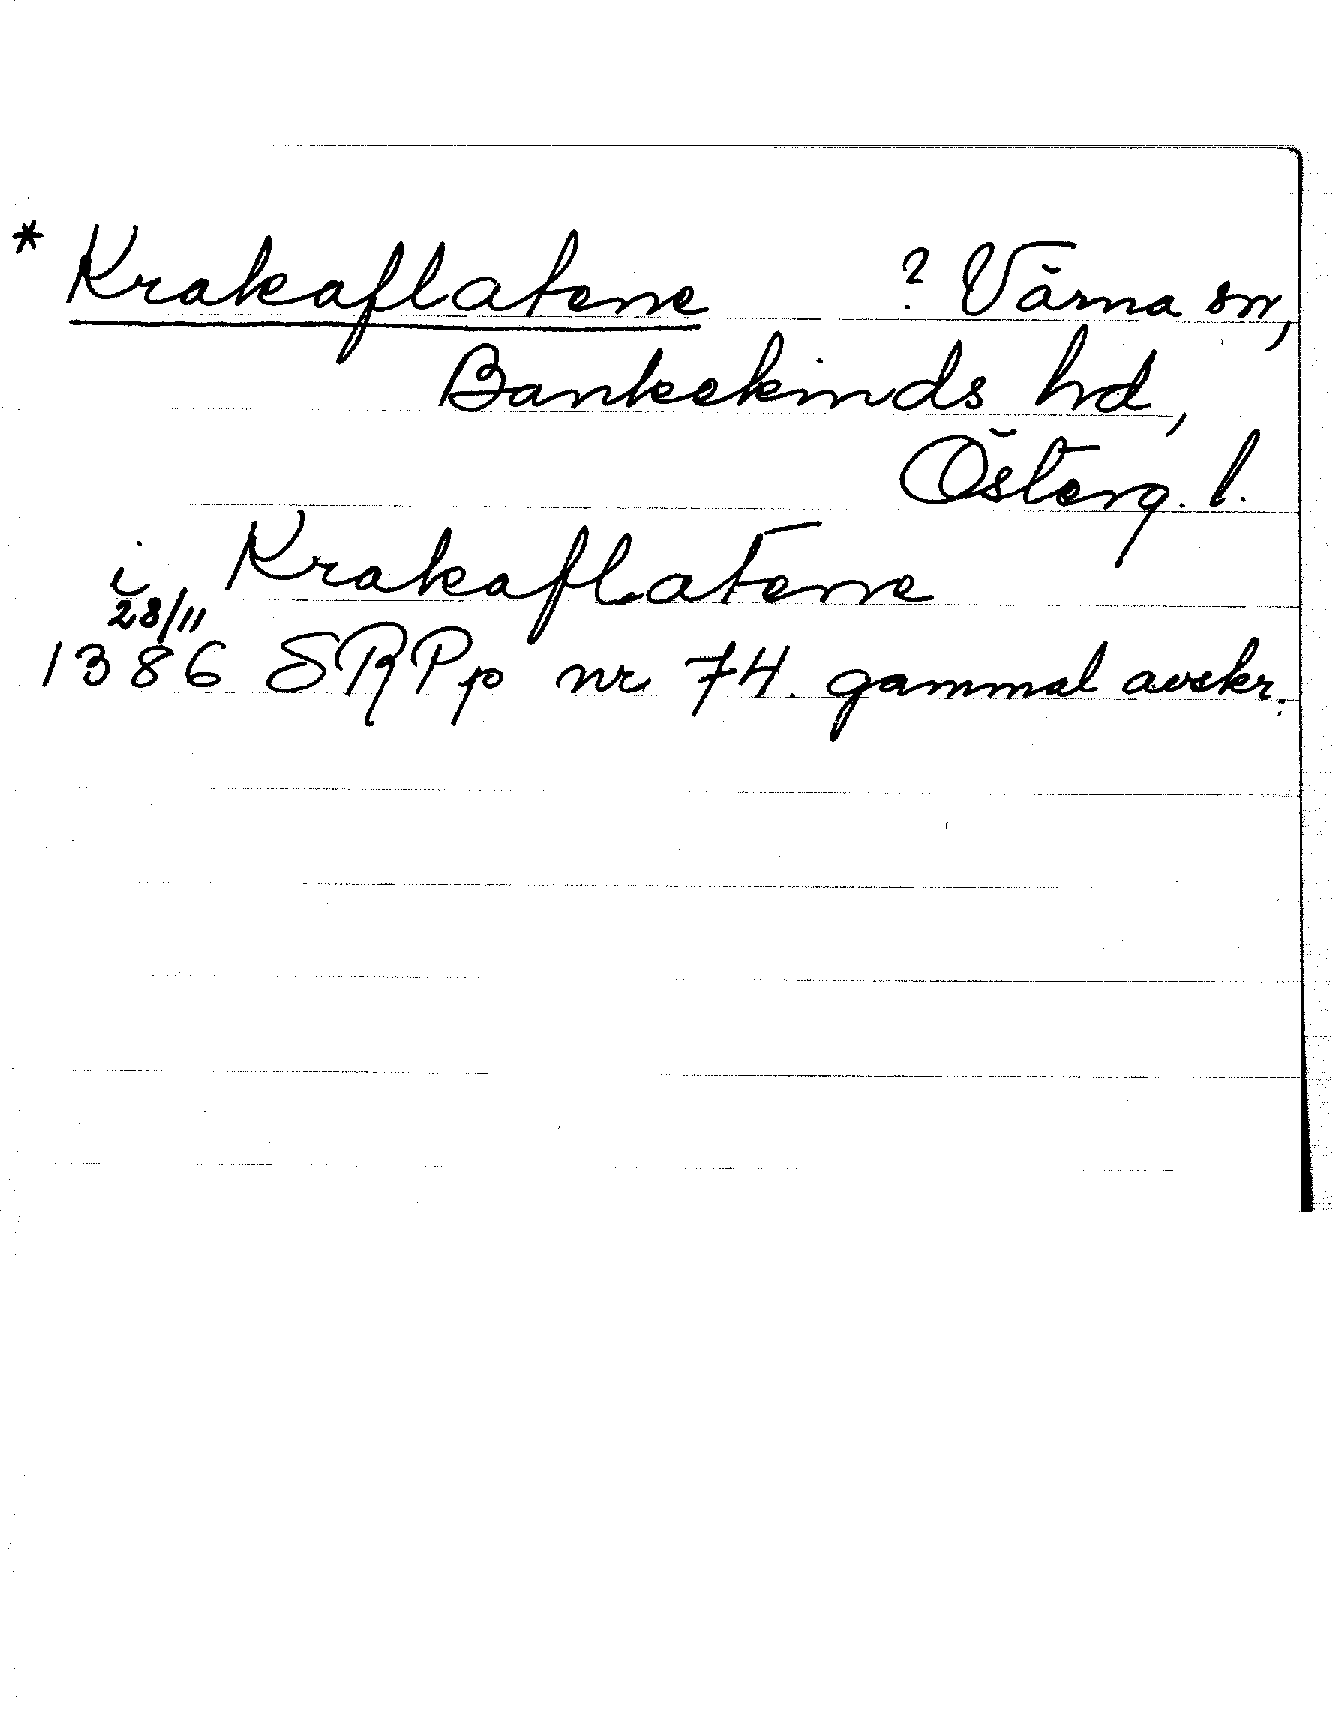 * Krakaflatene ? Värna sn,
Bankekinds hd,
Österg. l.
i Krakaflatene
28/11
1386 SRPp nr 74. gammal avskr.